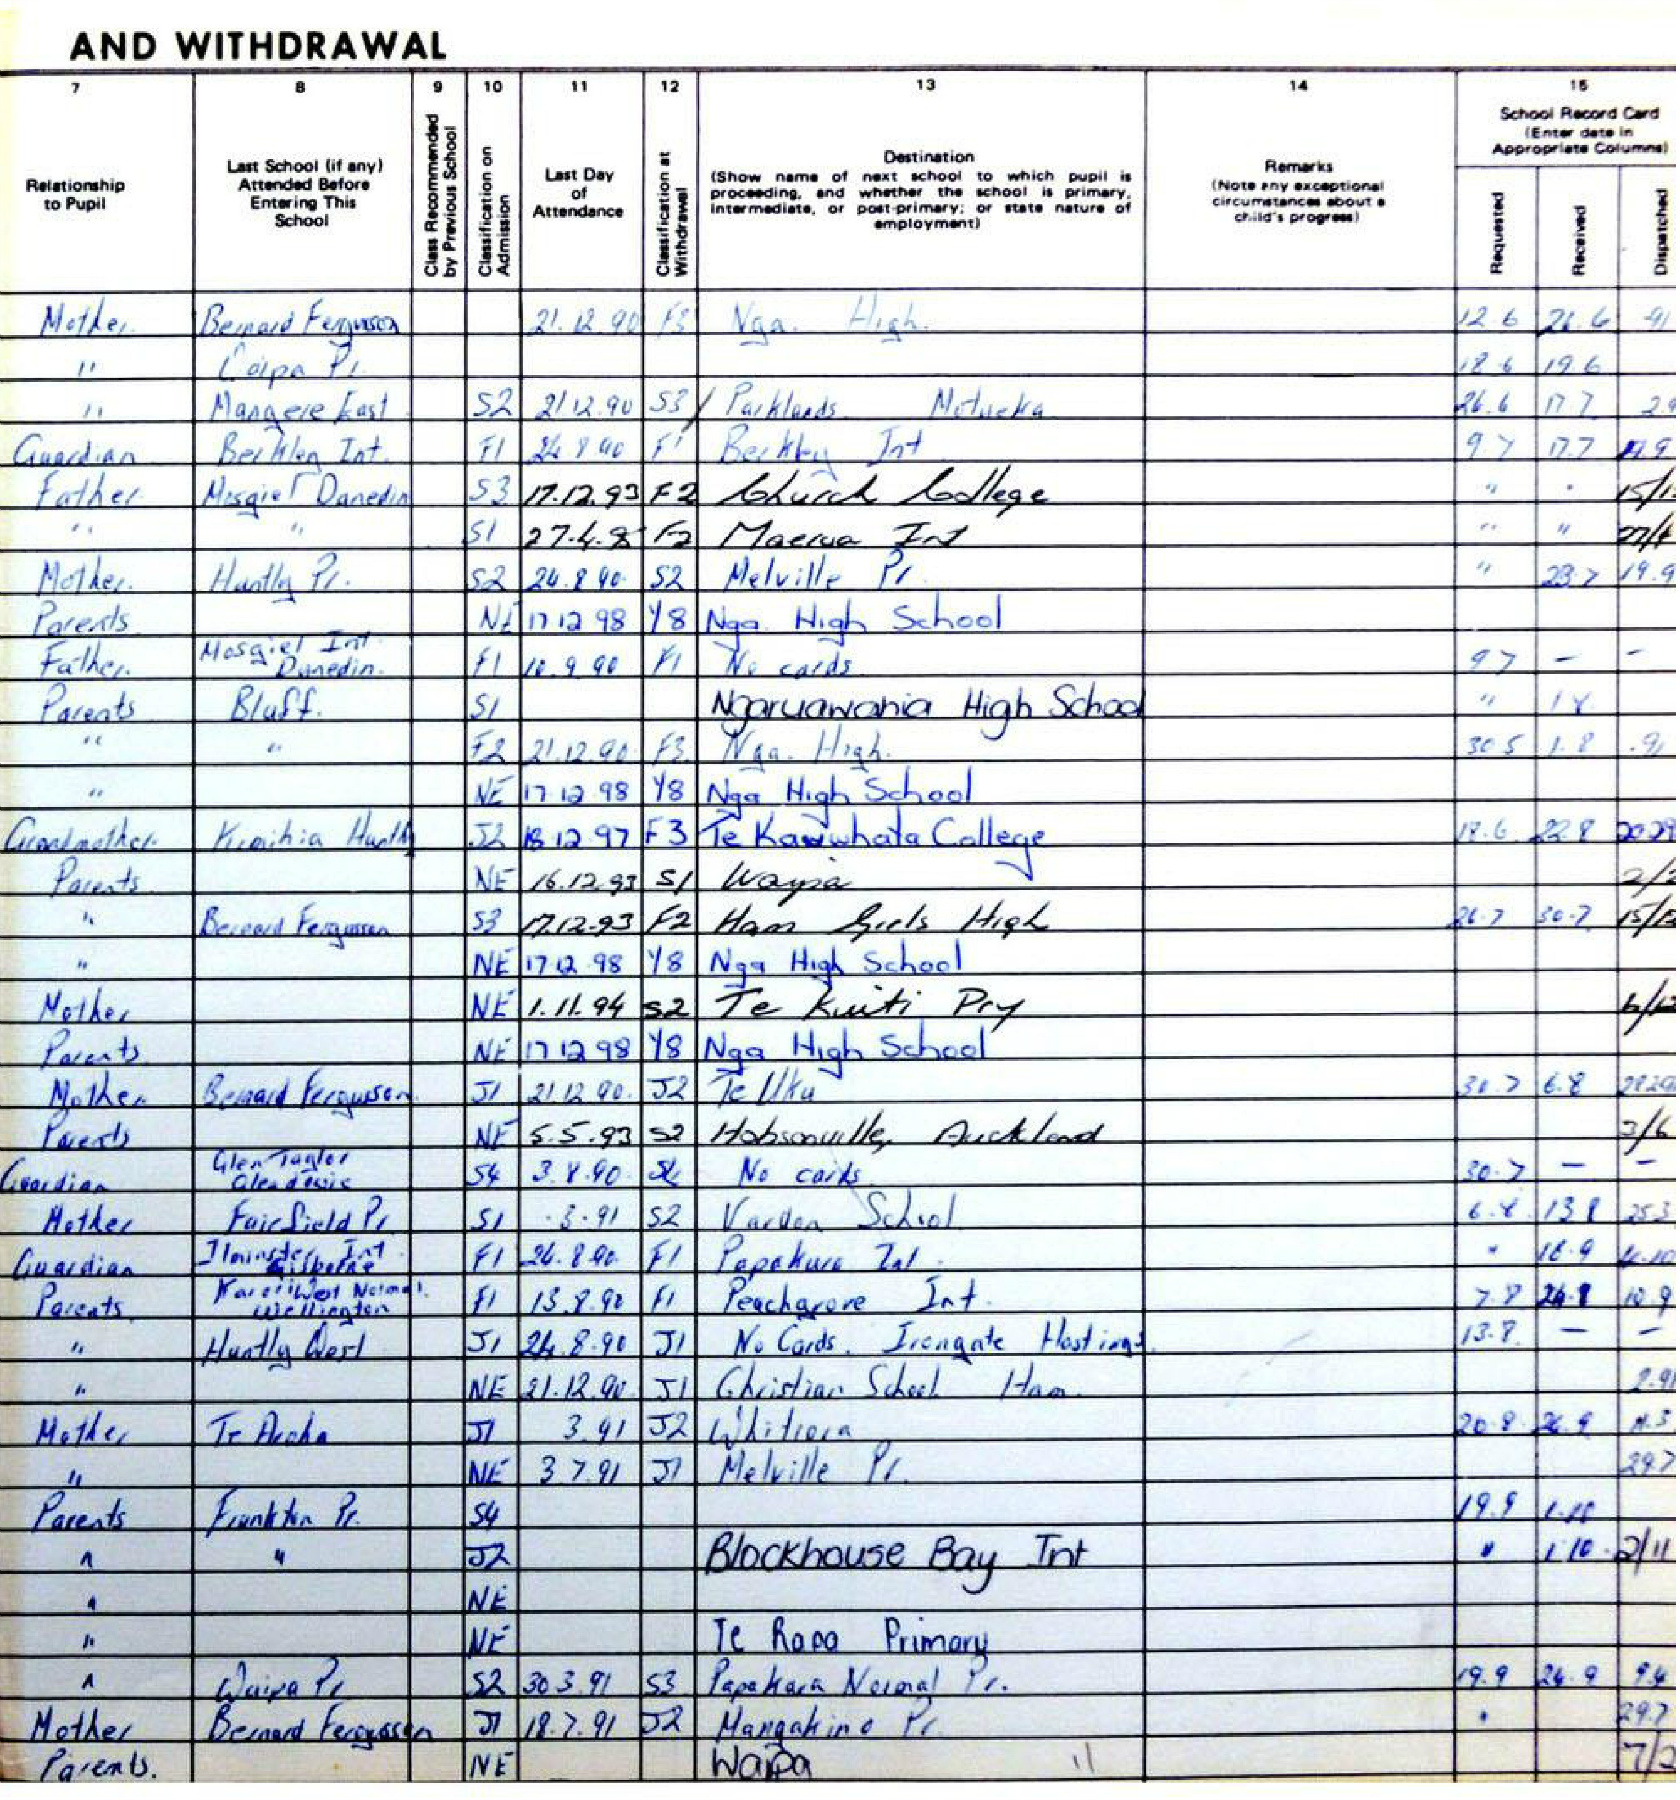 AND WITHDRAWAL
7 8 9 10 11 12 13 14 15
Relationship to Pupil
Last School (if any) Attended Before Entering This School
Class Recommended by Previous School
Classification on Admission
Last Day of Attendance
Classification at Withdrawal
Destination
(Show name of next school to which pupil is proceeding, and whether the school is primary, intermediate, or post-primary; or state nature of employment)
Remarks
(Note any exceptional circumstances about a child's progress)
School Record Card
(Enter date in Appropriate Columns)
Requested
Received
Dispatched
Mother Bernard Fergusson 21.12.90 F3 Nga. High. 12.6 26.6 .91
" Pr. 18.6 19.6
" Mangere East S2 21.12.90 S3 Parklands Motueka 26.6 17.7
Guardian Berkley Int. F1 24.8.90 F1 Berkley Int 9.7 17.7
Father Mosgiel Dunedin S3 17.12.93 F2 Church College " "
" " S1 F2 Maeroa Int " "
Mother. Huntly Pr. S2 24.8.90 S2 Melville Pr. " 23.7 19.9
Parents NE 17 12 98 Y8 Nga. High School
Father. Mosgiel Int Dunedin. F1 10.9.90 F1 No cards 9.7 – –
Parents Bluff. S1 Ngaruawahia High School "
" " F2 21.12.90 F3 Nga. High. 30.5 1.8 .91
" NE 17 12 98 Y8 Nga High School
Grandmother Kimihia Huntly J2 18.12.97 F3 Te Kauwhata College 17.6 22.8
Parents NE 16.12.93 S1 Waipa
" Bernard Fergusson S3 17.12.93 F2 Ham Girls High 26.7 30.7
" NE 17 12 98 Y8 Nga High School
Mother NE 1.11.94 S2 Te Kuiti Pry
Parents NE 17 12 98 Y8 Nga High School
Mother Bernard Fergusson J1 21.12.90 J2 Te Uku 30.7 6.8
Parents NE 5.5.93 S2 Hobsonville, Auckland 3/6
Guardian Glen Taylor S4 3.8.90 No cards 30.7 – –
Mother Fairfield Pr S1 .3.91 S2 Vardon School 13.8
Guardian Ilminster Int Gisborne F1 24.8.90 F1 Papakura Int. " 18.9
Parents Karori West Normal. Wellington F1 13.8.90 F1 Peachgrove Int. 7.8 24.8 10.9
" Huntly West J1 24.8.90 J1 No Cards. Irongate Hastings 13.8. – –
" NE 21.12.90. J1 Christian School Ham.
Mother Te Aroha J1 3.91 J2 Whitiora 20.8 26.9
" NE 3 7.91 J1 Melville Pr. 29.7
Parents Frankton Pr. S4 19.9 1.10
" " J2 Blockhouse Bay Int " 1.10 2/11
" NE
" NE Te Rapa Primary
" Waipa Pr S2 30 3.91 S3 Papakura Normal Pr. 19.9 26.9 9.4
Mother Bernard Fergusson J1 18.7.91 J2 Mangakino Pr. " 29.7
Parents. NE Waipa